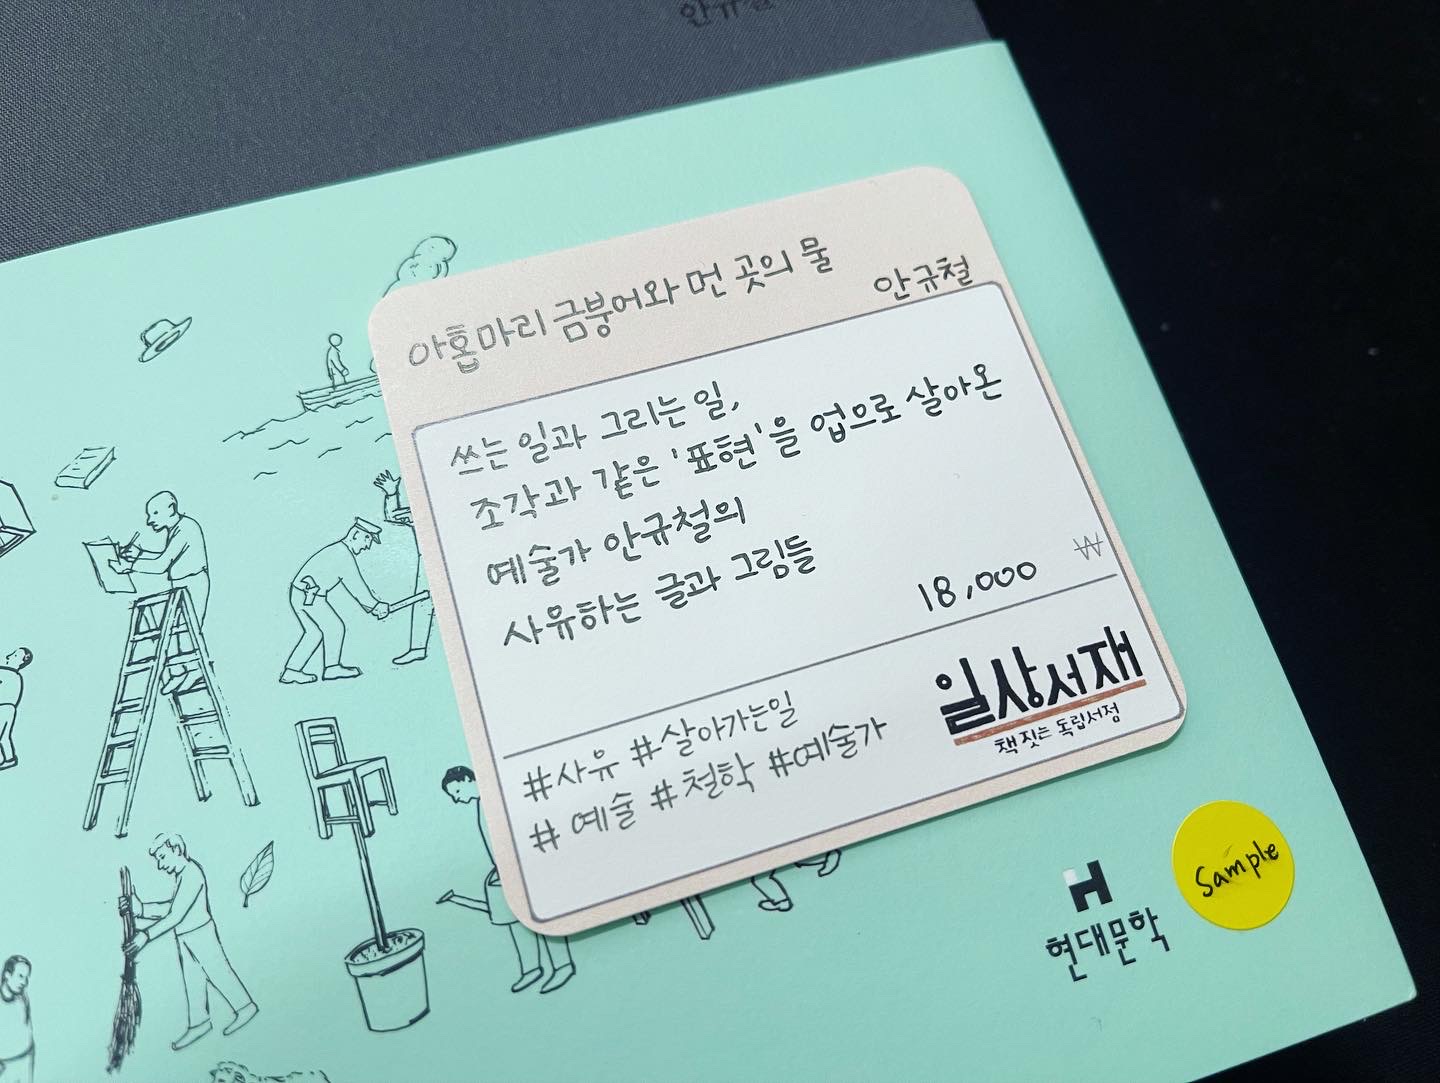 안규철
아홉마리 금붕어와 먼 곳의 물
안규철
쓰는 일과 그리는 일,
조각과 같은 '표현'을 업으로 살아온
예술가 안규철의
사유하는 글과 그림들
18,000 ₩
#사유 #살아가는일
# 예술 #철학 #예술가
일상서재
책 짓는 독립서점
Sample
현대문학